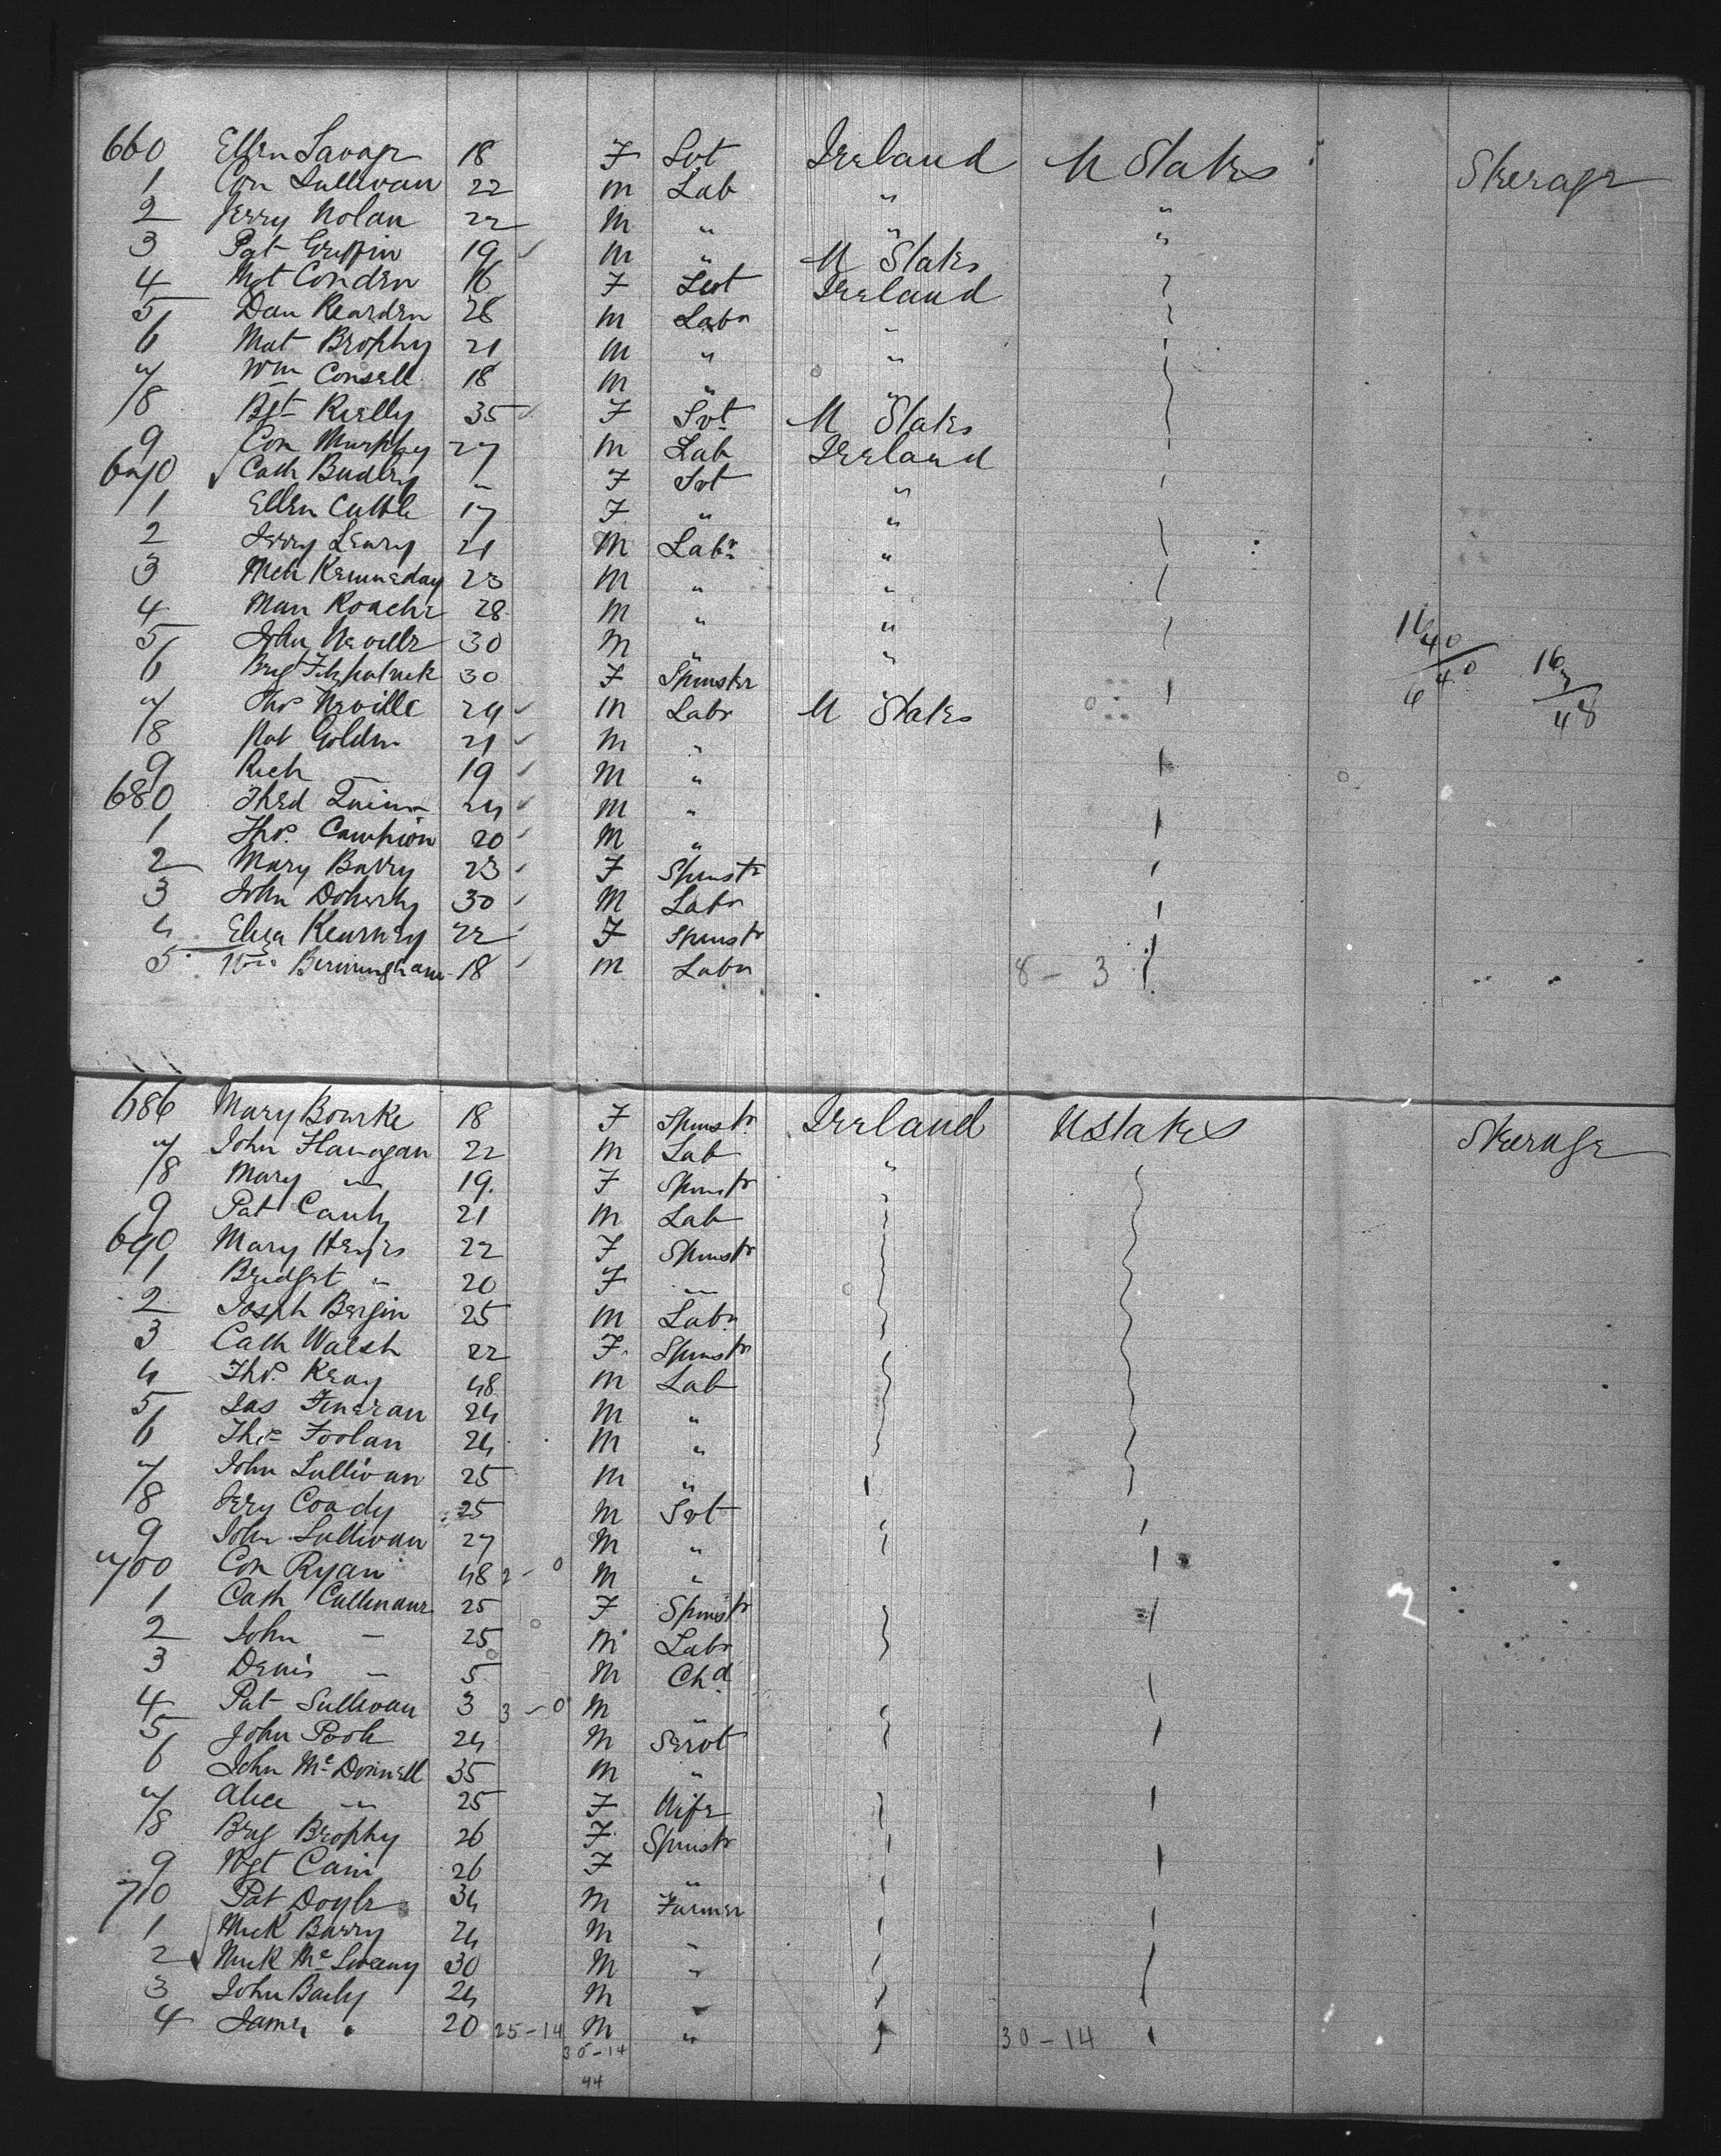 660 Ellen Savage 18 F Svt Ireland U States Steerage
1 Con Sullivan 22 M Lab " "
2 Jerry Nolan 22 M " " "
3 Pat Griffin 19 M " U States
4 Mgt Conden 16 F Svt Ireland
5 Dan Rearden 26 M Labr "
6 Mat Brophy 21 M " "
7 Wm Consell 18 M " "
8 Bgt Rielly 35 F Svt U States
9 Con Murphy 27 M Lab Ireland
670 Cath F Svt "
1 Ellen 17 F " "
2 Jerry Leary 21 M Labr "
3 Mich Kenneday 23 M " "
4 Man Roache 28 M " "
5 John Neville 30 M " "
6 Brig Fitzpatrick 30 F Spinster
7 Thos Neville 24 M Labr U States
8 Pat Golden 21 M "
9 Rich 19 M "
680 Quinn 24 M "
1 Thos. Campion 20 M "
2 Mary Barry 23 F Spinstr
3 John Doherty 30 M Labr
4 Eliza Kearney 22 F Spinstr
5 Birmingham 18 M Labr 8 - 3
686 Mary Bourke 18 F Spinstr. Ireland U States Steerage
7 John Flanagan 22 M Lab "
8 Mary " 19. F Spinstr
9 Pat 21 M Lab
690 Mary Heyes 22 F Spinstr
1 Bridget " 20 F "
2 Joseph Bergin 25 M Labr
3 Cath Walsh 22 F. Spinstr
4 Thos. Keay 48 M Lab
5 Jas Fineran 24 M "
6 Thos Foolan 24 M "
7 John Sullivan 25 M "
8 Jery Coady 25 M Svt
9 John Sullivan 27 M "
700 Con Ryan 48 2 - 0 M "
1 Cath Cullinane 25 F Spinstr
2 John - 25 M Labr
3 Denis - 5 M Chd
4 Pat Sullivan 3 3 - 0 M "
5 John Poole 24 M Servt
6 John Mc Donnell 35 M "
7 Alice " 25 F Wife
8 Brig Brophy 26 F. Spinstr
9 Mgt Cain 26 F "
710 Pat Doyle 34 M Farmer
1 Mick Barry 24 M "
2 Mick Mc Sweeny 30 M "
3 John Baily 24 M "
4 James " 20 25-14 M " 30-14
30-14
44